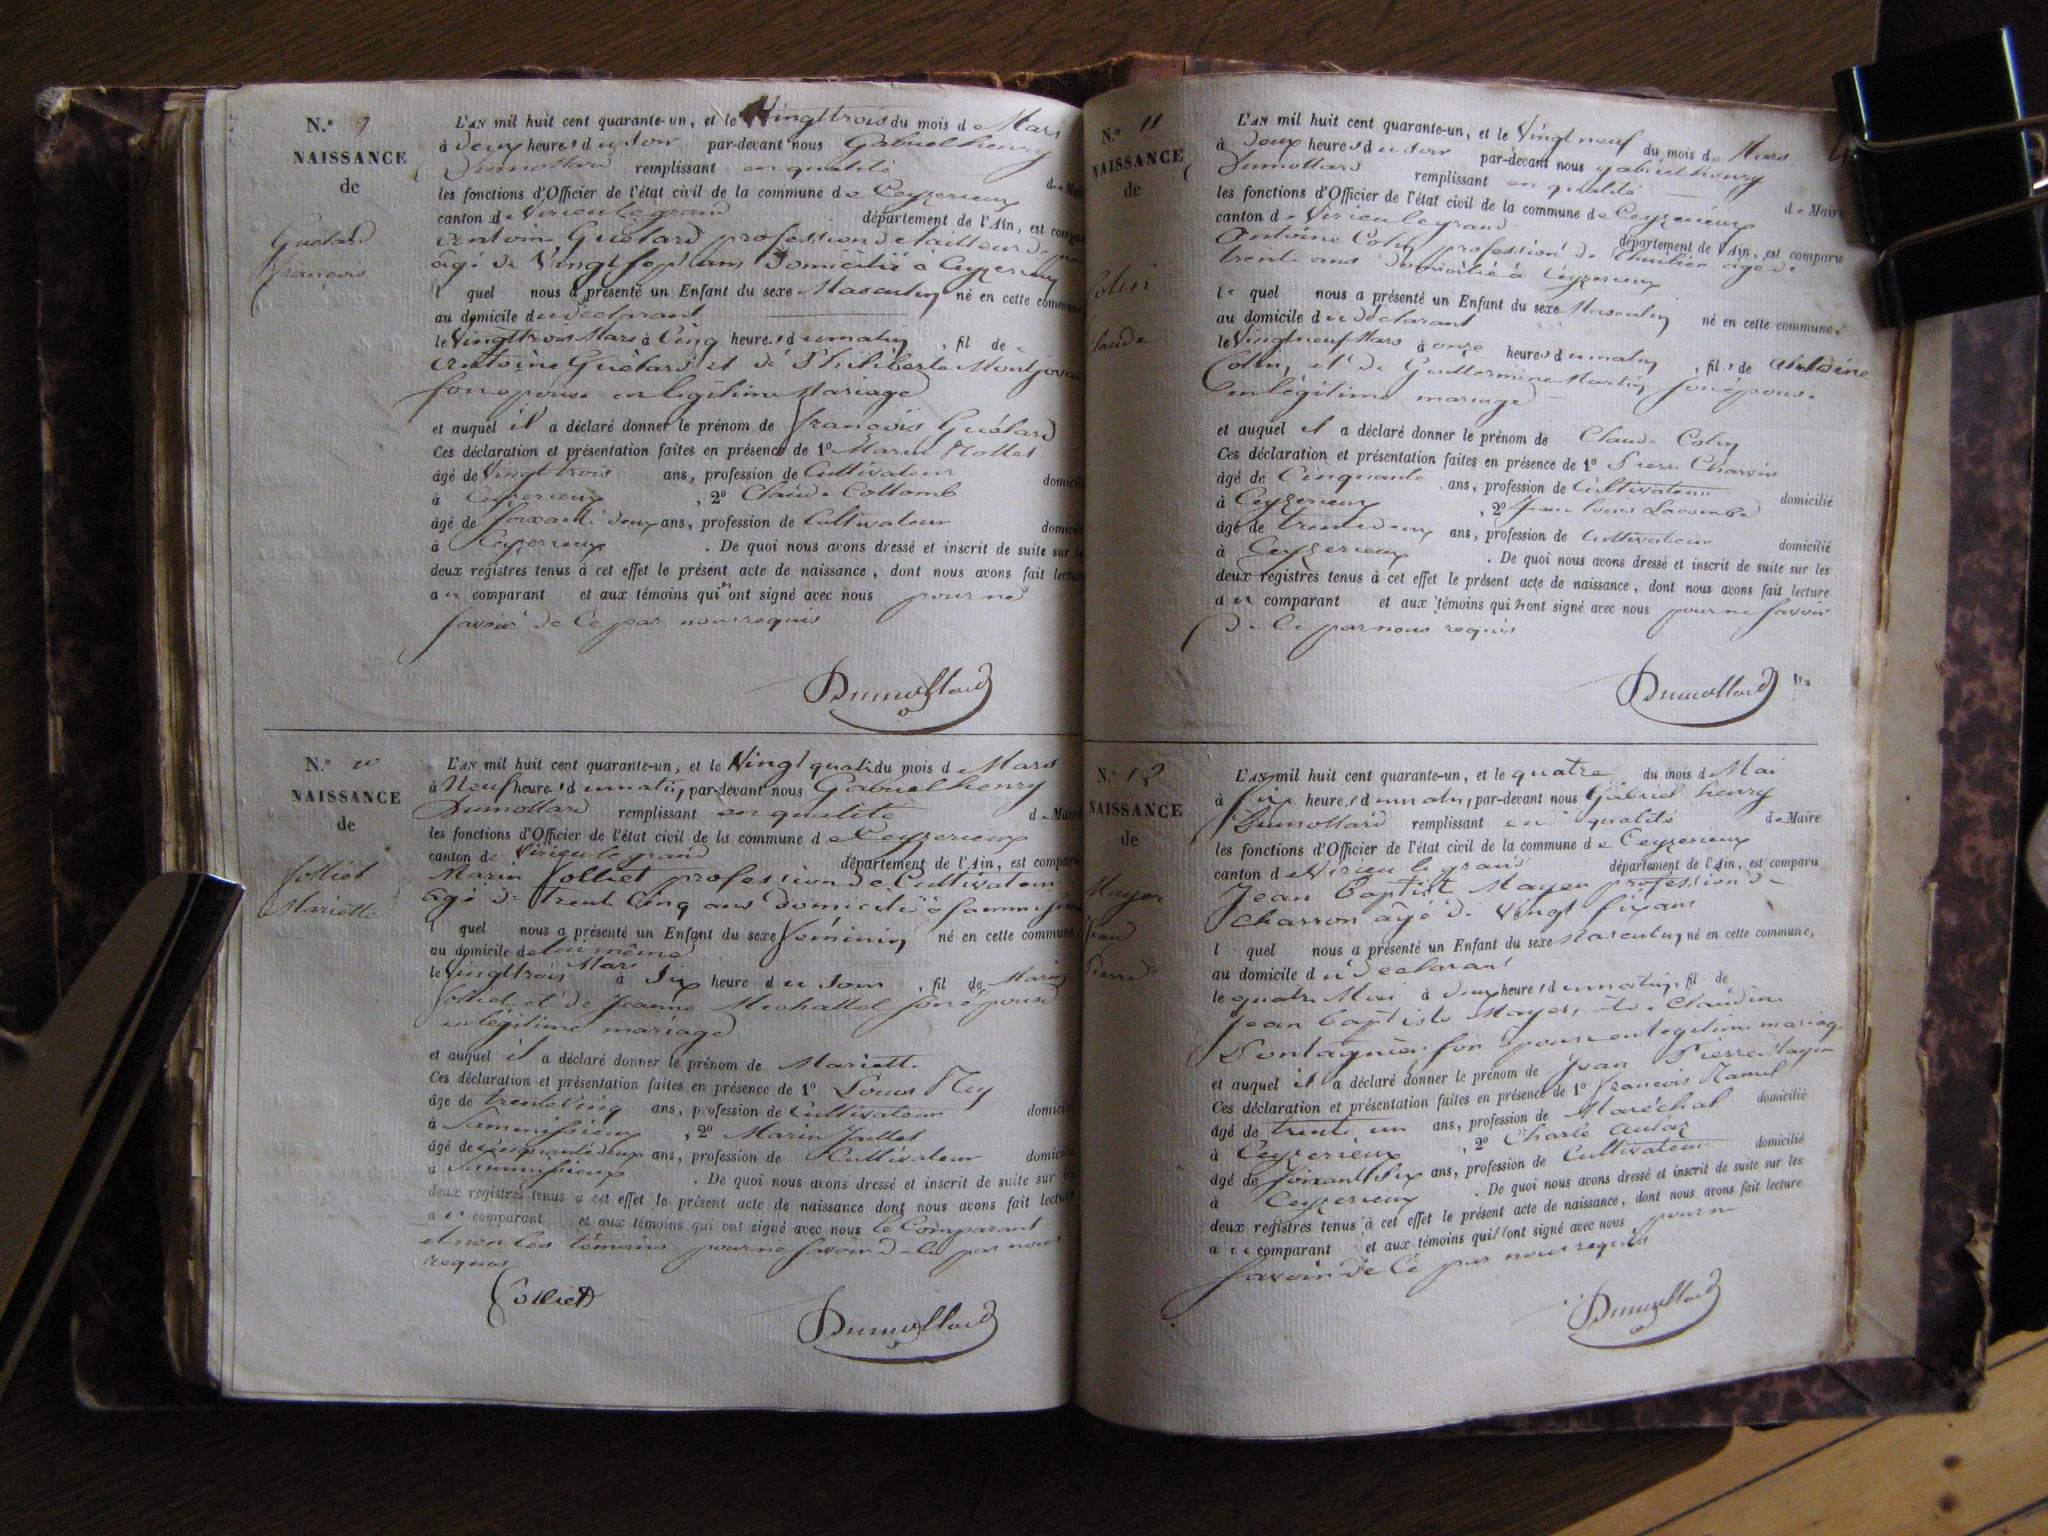 N.º 9
NAISSANCE
de
Guélard
François
L'AN mil huit cent quarante-un, et le Vingttrois du mois de Mars
à deux heures du soir par-devant nous Gabriel henry
Dumollard remplissant en qualité de Mai
les fonctions d'Officier de l'état civil de la commune de Ceyzerieux
canton de Virieu le grand département de l'Ain, est compa
antoine Guélard profession de tailleur de
âgé de Vingt sept ans domicilié à Ceyzerieux
l quel nous a présenté un Enfant du sexe Masculin né en cette commune
au domicile du déclarant
le Vingttrois Mars à Cinq heures du matin, fil de
antoine Guélard et de Philiberte Montjov
son épouse en légitime Mariage
et auquel il a déclaré donner le prénom de françois Guélard
Ces déclaration et présentation faites en présence de 1º Marin
âgé de Vingttrois ans, profession de Cultivateur domicili
à Ceyzerieux, 2º Claude Collomb
âgé de soixante deux ans, profession de Cultivateur domici
à Ceyzerieux. De quoi nous avons dressé et inscrit de suite sur le
deux registres tenus à cet effet le présent acte de naissance, dont nous avons fait lecture
au comparant et aux témoins qui n'ont signé avec nous pour ne
savoir de ce par nous requis
Dumollard
N.º 10
NAISSANCE
de
Jolliet
Mariette
L'AN mil huit cent quarante-un, et le Vingt quatre du mois de Mars
à Neuf heures du matin, par-devant nous Gabriel henry
Dumollard remplissant en qualité de Maire
les fonctions d'Officier de l'état civil de la commune de Ceyzerieux
canton de Virieu le grand département de l'Ain, est compar
Marin Jolliet profession de Cultivateur
âgé de trente Cinq ans domicilié à
l quel nous a présenté un Enfant du sexe féminin né en cette commune
au domicile de lui même
le Vingttrois Mars à Six heure du Soir, fil de Marin
Jolliet et de Jeanne son épouse
en légitime mariage
et auquel il a déclaré donner le prénom de Mariette
Ces déclaration et présentation faites en présence de 1º Louis
âge de trente Cinq ans, profession de Cultivateur domicili
à, 2º Marin Jolliet
âgé de cinquante deux ans, profession de Cultivateur domicil
à. De quoi nous avons dressé et inscrit de suite sur les
deux registres tenus à cet effet le présent acte de naissance dont nous avons fait lecture
au comparant et aux témoins qui ont signé avec nous le Comparant
et non les témoins pour ne savoir de ce par nous
requis
Jolliet
Dumollard
N.º 11
NAISSANCE
de
Colin
Claude
L'AN mil huit cent quarante-un, et le Vingt neuf du mois de Mars
à deux heures du soir par-devant nous gabriel henry
Dumollard remplissant en qualité de Maire
les fonctions d'Officier de l'état civil de la commune de Ceyzerieux
canton de Virieu le grand département de l'Ain, est comparu
Antoine Colin profession de âgé de
trente ans domicilié à Ceyzerieux
le quel nous a présenté un Enfant du sexe Masculin né en cette commune,
au domicile du déclarant
le Vingtneuf Mars à onze heures du matin, fils de Antoine
Colin, et de Guillermine Martin son épouse
en légitime mariage
et auquel il a déclaré donner le prénom de Claude Colin
Ces déclaration et présentation faites en présence de 1º Pierre Charvin
âgé de Cinquante ans, profession de Cultivateur domicilié
à Ceyzerieux, 2º Jean louis Lacombe
âgé de trente deux ans, profession de Cultivateur domicilié
à Ceyzerieux. De quoi nous avons dressé et inscrit de suite sur les
deux registres tenus à cet effet le présent acte de naissance, dont nous avons fait lecture
au comparant et aux témoins qui n'ont signé avec nous pour ne savoir
de ce par nous requis
Dumollard
N.º 12
NAISSANCE
de
Mayer
Jean
Pierre
L'AN mil huit cent quarante-un, et le quatre du mois de Mai
à six heures du matin, par-devant nous Gabriel henry
Dumollard remplissant en qualité de Maire
les fonctions d'Officier de l'état civil de la commune de Ceyzerieux
canton de Virieu le grand département de l'Ain, est comparu
Jean Baptiste Mayer profession de
Charron âgé de Vingt six ans
l quel nous a présenté un Enfant du sexe Masculin né en cette commune,
au domicile du déclarant
le quatre Mai à deux heures du matin, fil de
Jean Baptiste Mayer, et de Claudine
son épouse en légitime mariage
et auquel il a déclaré donner le prénom de Jean Pierre Mayer
Ces déclaration et présentation faites en présence de 1º francois
âgé de trente un ans, profession de Maréchal domicilié
à Ceyzerieux, 2º Charle
âgé de soixante dix ans, profession de Cultivateur domicilié
à Ceyzerieux. De quoi nous avons dressé et inscrit de suite sur les
deux registres tenus à cet effet le présent acte de naissance, dont nous avons fait lecture
au comparant et aux témoins qui n'ont signé avec nous pour ne
savoir de ce par nous requis
Dumollard